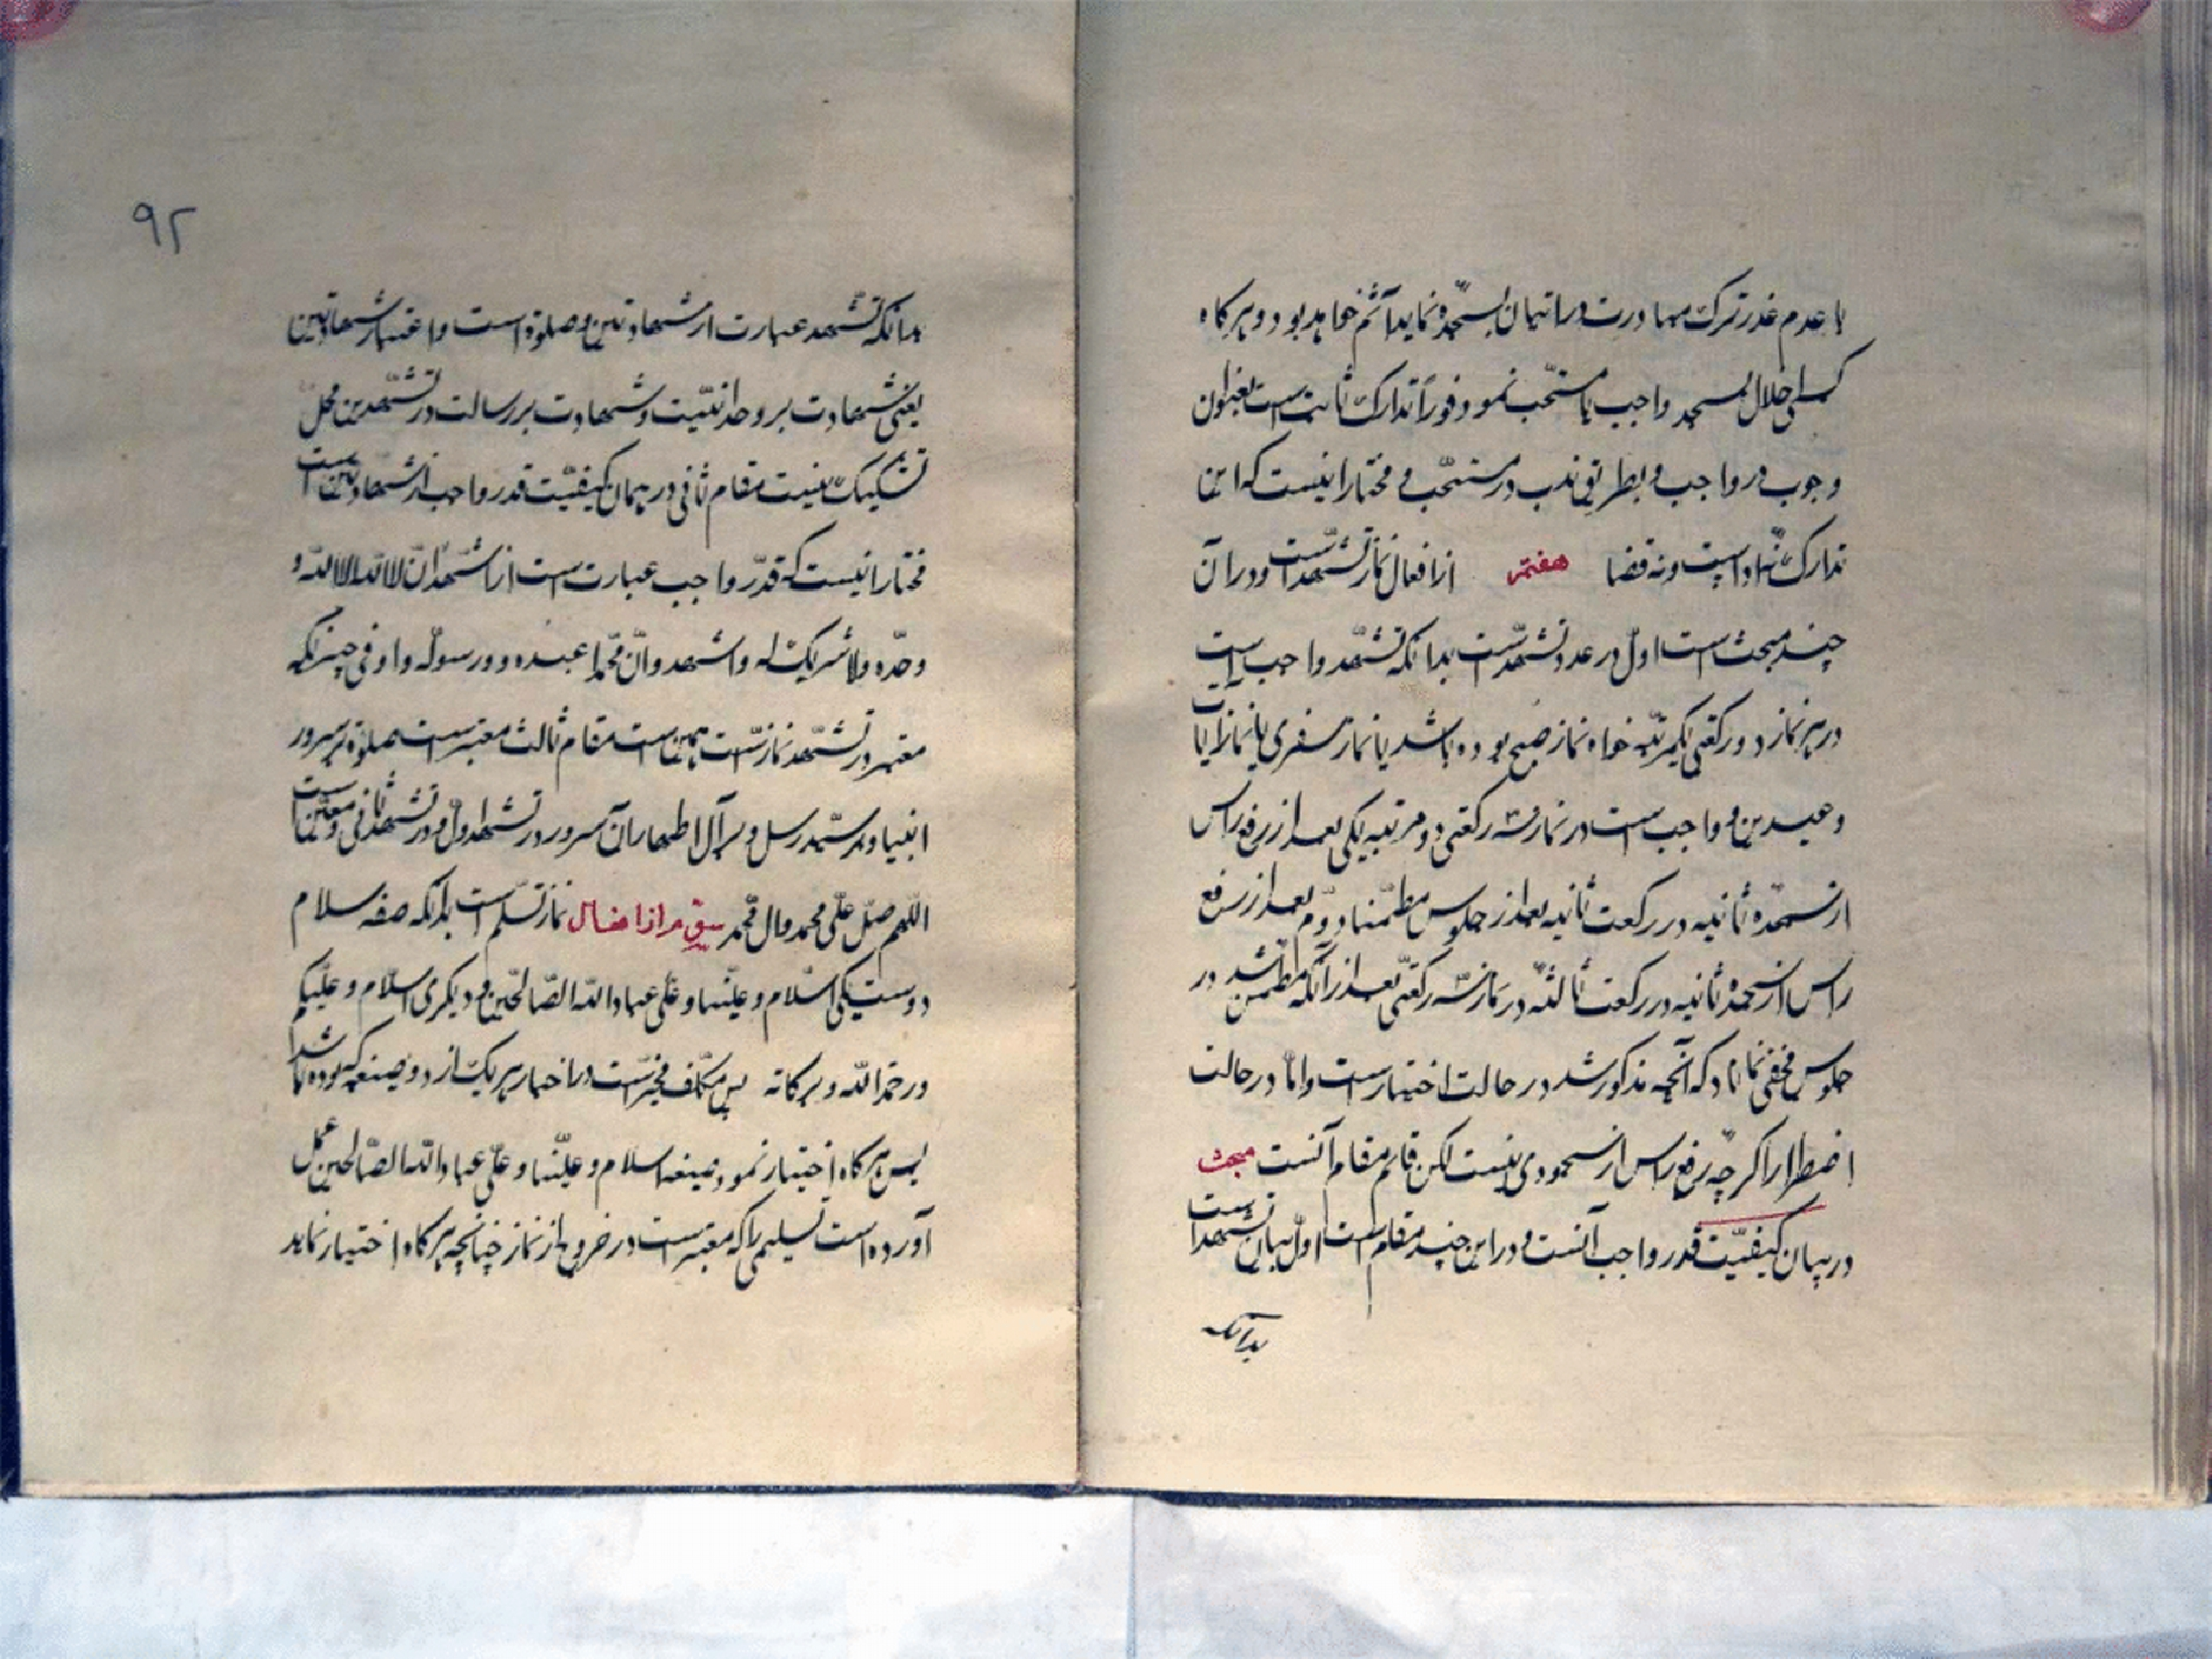 با عدم عذر ترک مبادرت در اتیان بسجده نماید آثم خواهد بود و هرگاه
کسی اخلال بسجد واجب یا مستحب نمود فوراً تدارک ثابت است بعنوان
وجوب در واجب و بطریق ندب در مستحب و مختار اینست که این
تدارک نه ادا است و نه قضا هفتم از افعال نماز تشهد است و در آن
چند مبحث است اول در عدد تشهد است بدانکه تشهد واجب است
در هر نماز دو رکعتی یکمرتبه خواه نماز صبح بوده باشد یا نماز سفری یا نماز آیات
و عیدین و واجب است در نماز سه رکعتی دو مرتبه یکی بعد از رفع راس
از سجده ثانیه در رکعت ثانیه بعد از جلوس مطمئنا دوم بعد از رفع
راس از سجده ثانیه در رکعت ثالثه در نماز سه رکعتی بعد از آنکه مطمئن شد در
جلوس مخفی نماناد که آنچه مذکور شد در حالت اختیار است و اما در حالت
اضطرار اگر چه رفع راس از سجودی نیست لکن قائم مقام آنست مبحث
در بیان کیفیت قدر واجب آنست و در این چند مقام است اول بیان تشهد است
بدانکه
۹۲
بدانکه تشهد عبارت از شهادتین و صلوة است و اعتبار شهادتین
یعنی شهادت بر وحدانیت و شهادت بر رسالت در تشهدین محل
تشکیک نیست مقام ثانی در بیان کیفیت قدر واجب از شهادتین است
مختار اینست که قدر واجب عبارت است از اشهد ان لا اله الا الله و
وحده ولا شریک له و اشهد و ان محمدا عبده و و رسوله و اوفی چیزیکه
معتبر در تشهد نماز است همین است مقام ثالث معتبر است صلوة بر سرور
انبیا و بر سید رسل و بر آل اطهار آن سرور در تشهد اول و در تشهد ثانی و معین است
اللهم صل علی محمد و ال محمد از افعال نماز تسلیم است بدانکه صیغه سلام
دوست یکی السلام و علینا و علی عباد الله الصالحین و دیگری السلام و علیکم
و رحمة الله و برکاته پس مکلف مخیر است در اختیار هریک از دو صیغه که بوده باشد
پس هرگاه اختیار نمود صیغه السلام و علینا و علی عباد الله الصالحین عمل
آورده است تسلیمی را که معتبر است در خروج از نماز چنانچه هرگاه اختیار نماید